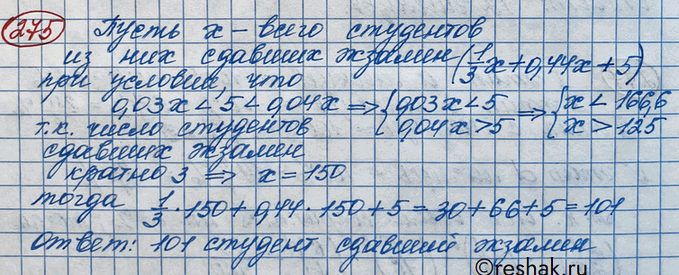 275 Пусть x – всего студентов
из них сдавших экзамен (1/3 x + 0,44x + 5)
при условии, что
0,03x < 5 < 0,04x ⇒ { 0,03x < 5 ⇒ { x < 166,6
т.к. число студентов { 0,04x > 5 { x > 125
сдавших экзамен
кратно 3 ⇒ x = 150
тогда 1/3 · 150 + 0,44 · 150 + 5 = 30 + 66 + 5 = 101
Ответ: 101 студент сдавший экзамен
©reshak.ru